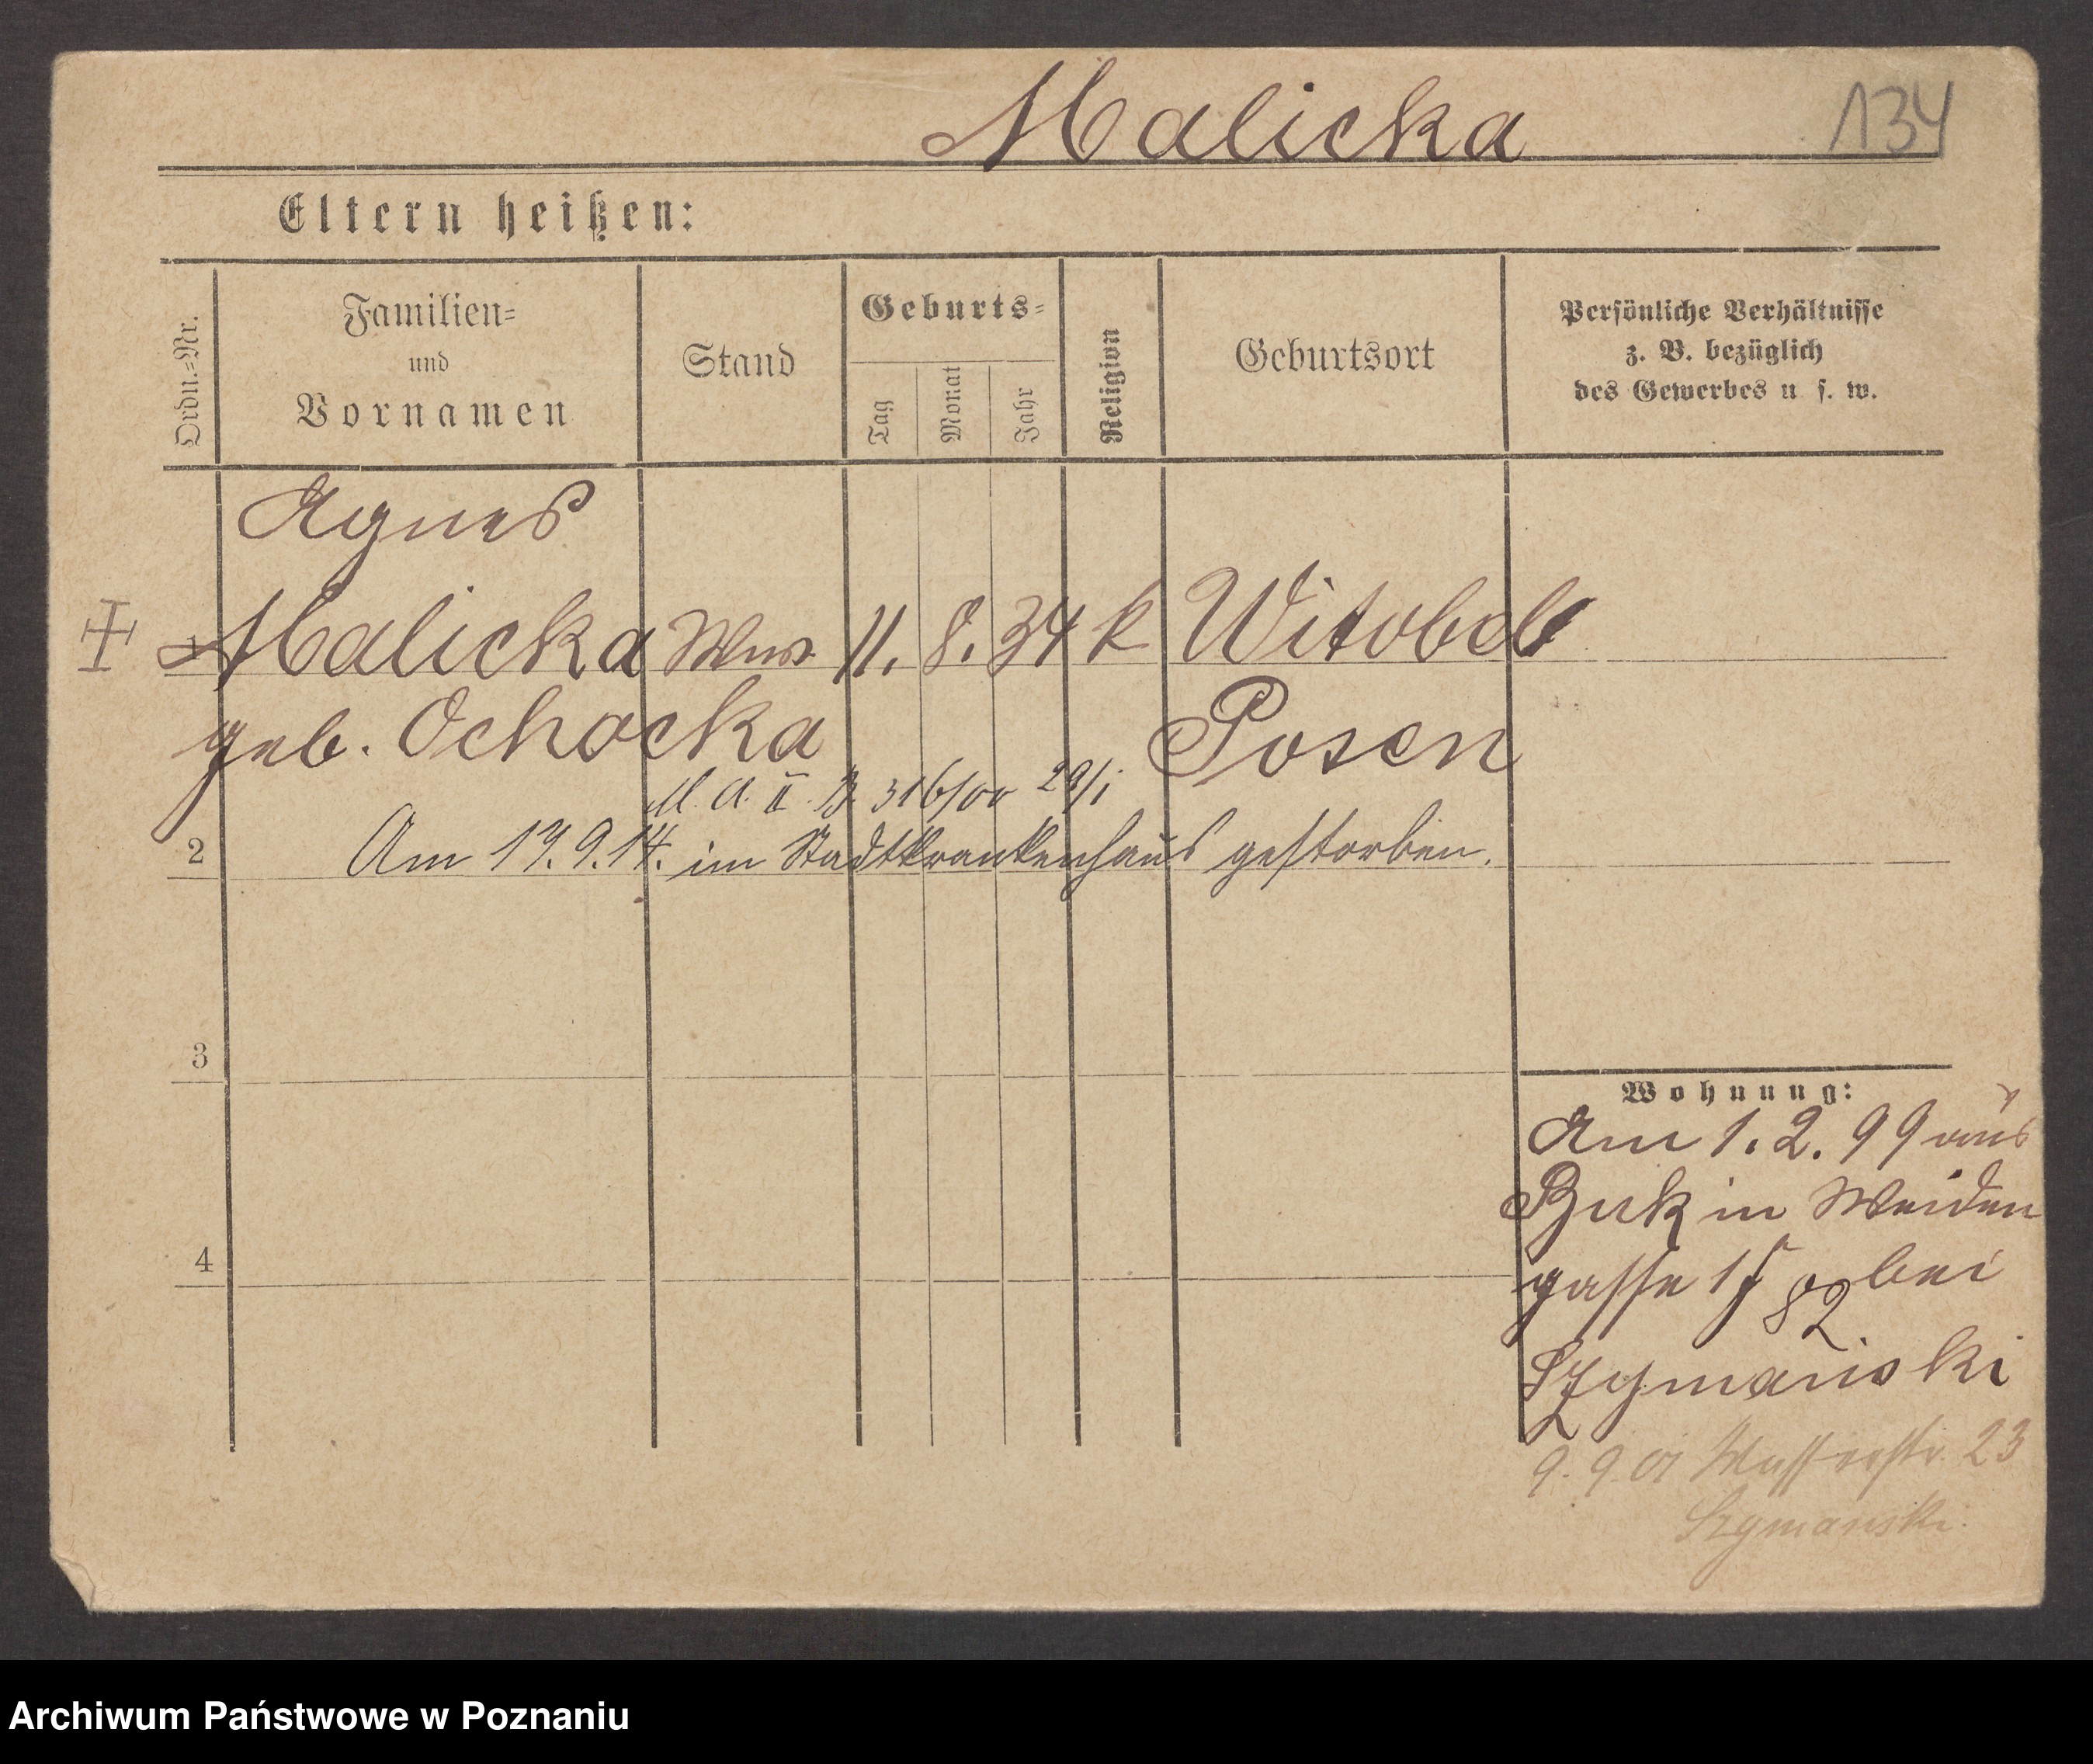 Malicka
134
Eltern heißen:
Ordn.=Nr.
Familien=
und
Vornamen
Stand
Geburts=
Tag
Monat
Jahr
Religion
Geburtsort
Persönliche Verhältnisse
z. B. bezüglich
des Gewerbes u. s. w.
Agnes
1 Malicka Wwe 11. 8. 34 k Witobel
geb. Ochocka Posen
M. A. II. B. 316/00 29/1
2 Am 19. 9. 14. im Stadtkrankenhaus gestorben.
3
Wohnung:
Am 1. 2. 99 aus
Buk in Weiden
4
gasse bei
82
Szymański
9. 9. 01 Wasserstr. 23
Szymanski.
Archiwum Państwowe w Poznaniu